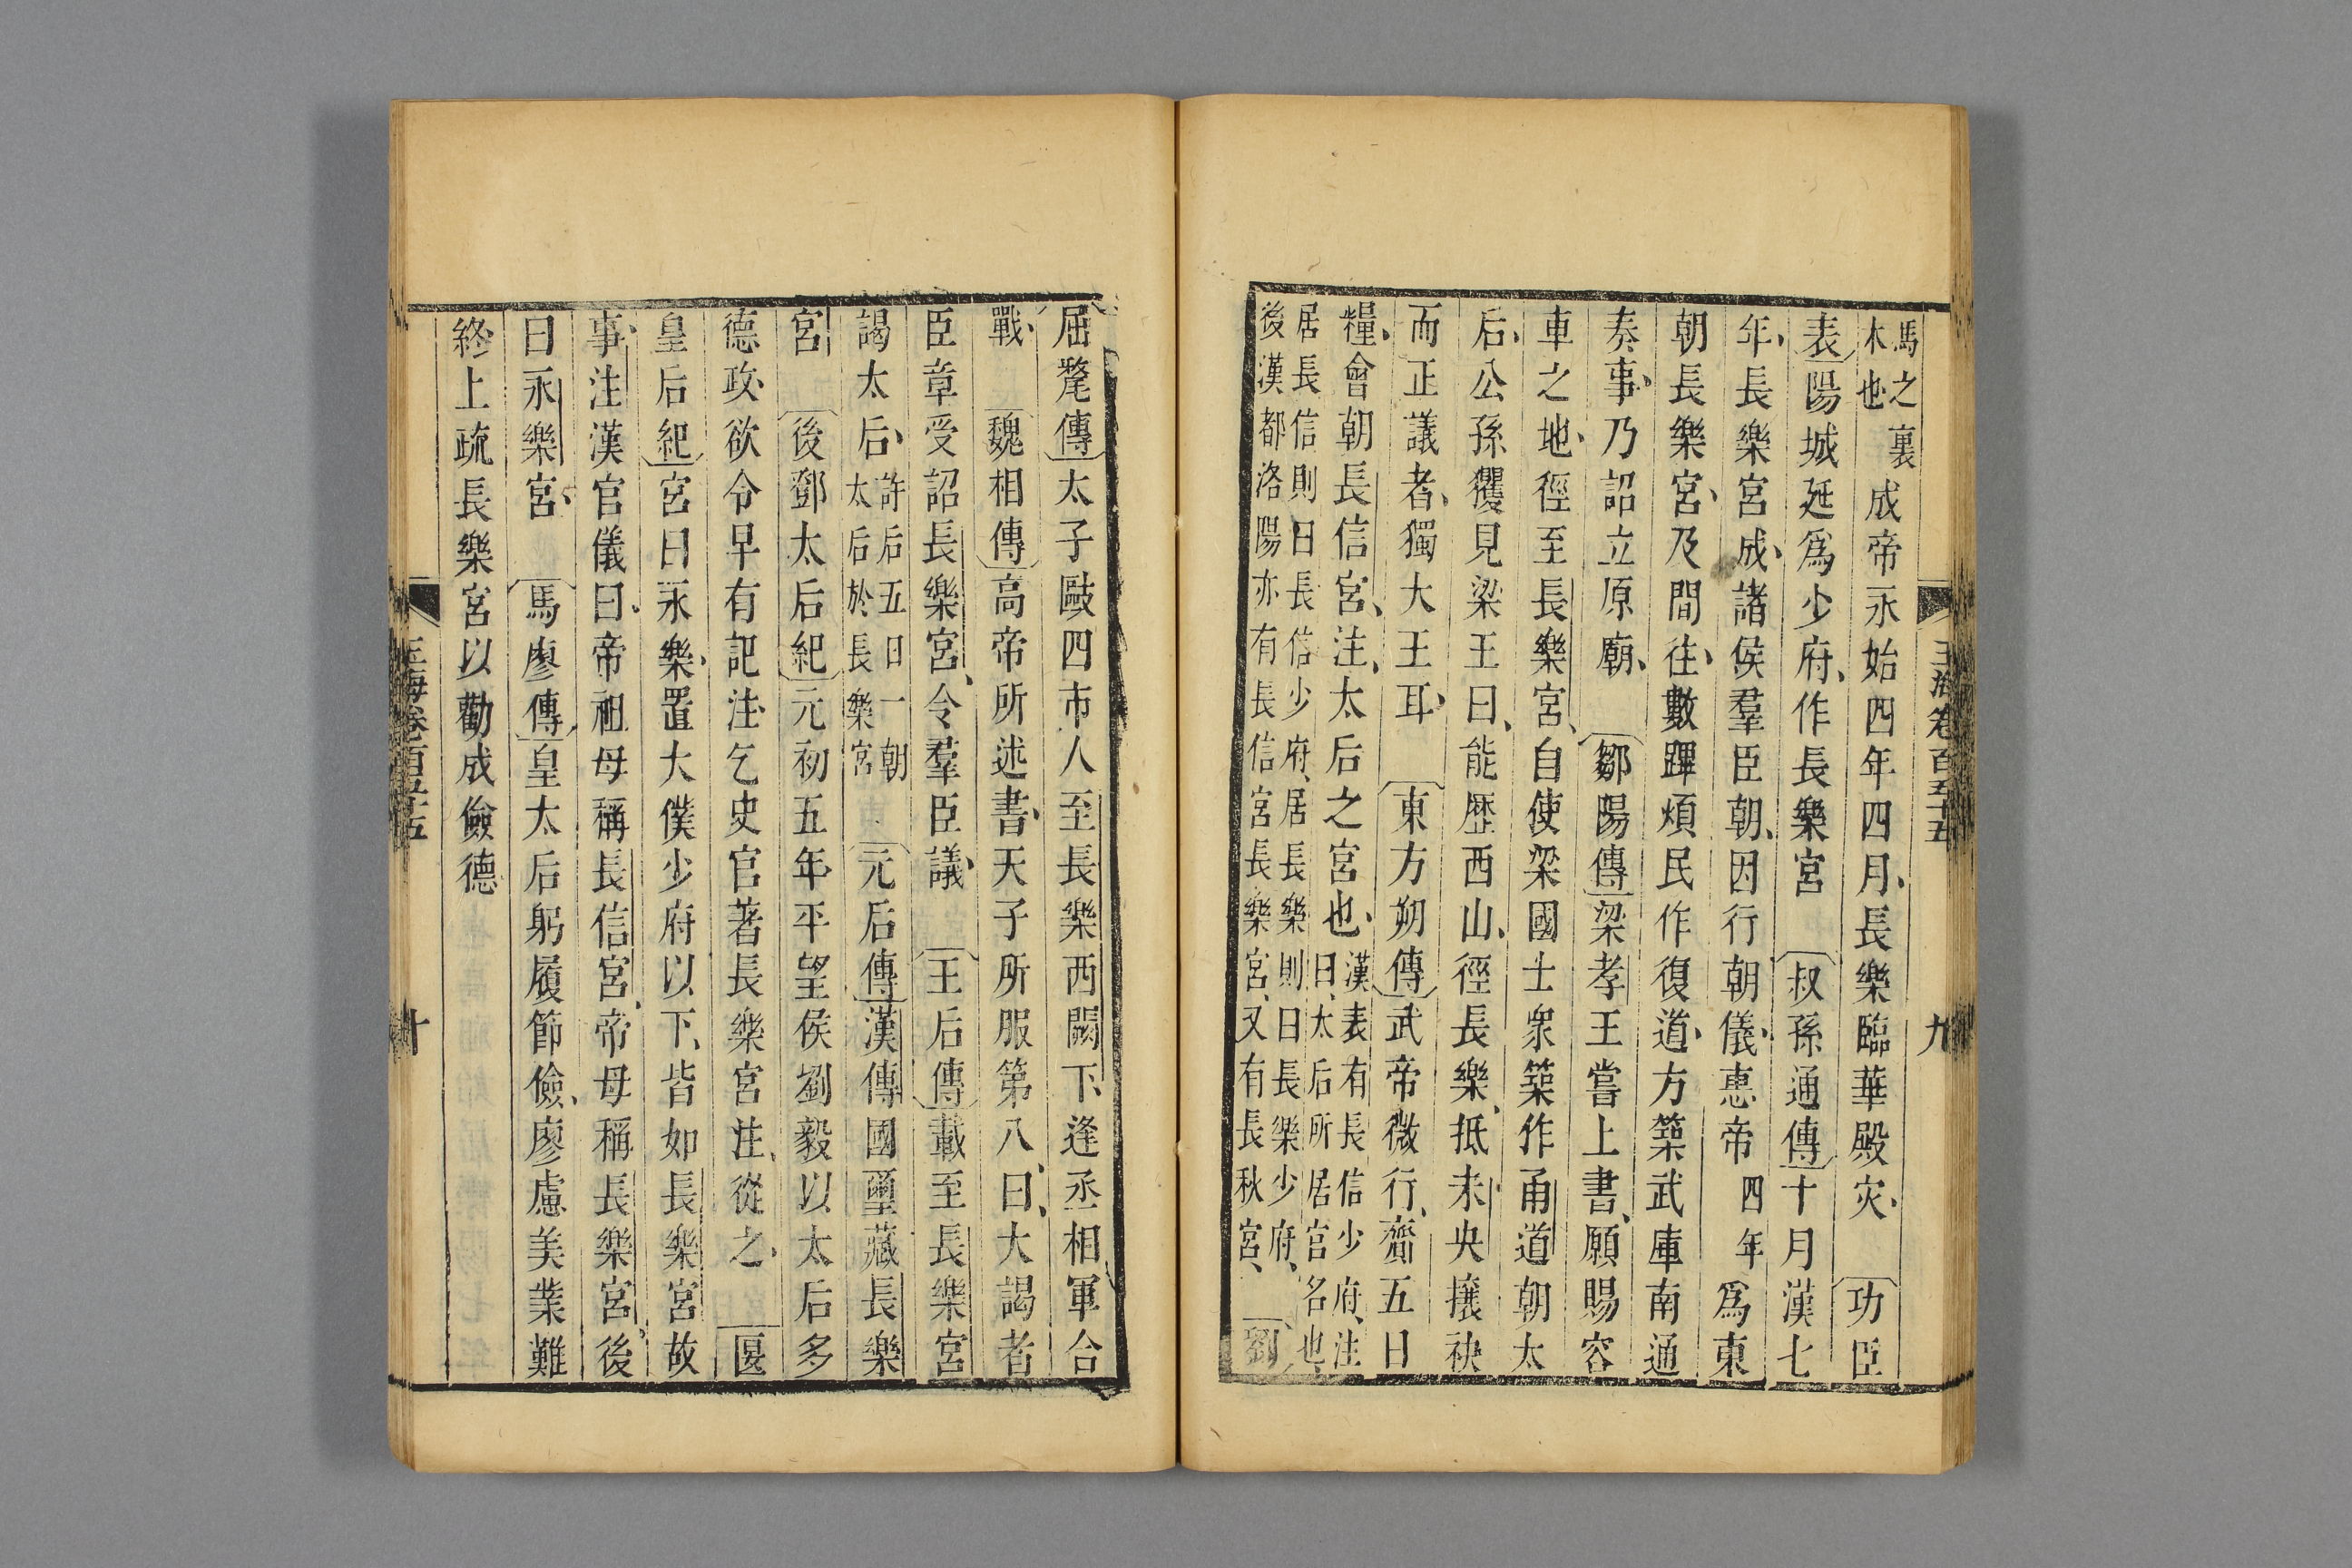 玉海卷百五十五
九
馬之裏
木也
成帝永始四年四月長樂臨華殿灾
功臣
表
陽城延爲少府作長樂宮
叔孫通傳十月漢七
年長樂宮成諸侯羣臣朝因行朝儀惠帝四年爲東
朝長樂宮及間往數蹕煩民作復道方築武庫南通
奏事乃詔立原廟
鄒陽傳梁孝王嘗上書願賜容
車之地徑至長樂宮自使梁國士衆築作甬道朝太
后公孫玃見梁王曰能歷西山徑長樂抵未央攘袂
而正議者獨大王耳
東方朔傳武帝微行齎五日
糧會朝長信宮注太后之宮也
漢表有長信少府注
曰太后所居宮名也
居長信則曰長信少府居長樂則曰長樂少府
後漢都洛陽亦有長信宮長樂宮又有長秋宮
劉
屈氂傳太子敺四市人至長樂西闕下逢丞相軍合
戰
魏相傳高帝所述書天子所服第八曰大謁者
臣章受詔長樂宮令羣臣議
王后傳載至長樂宮
謁太后
許后五日一朝
太后於長樂宮
元后傳漢傳國璽藏長樂
宮
後鄧太后紀元初五年平望侯劉毅以太后多
德政欲令早有記注乞史官著長樂宮注從之
匽
皇后紀宮曰永樂置太僕少府以下皆如長樂宮故
事注漢官儀曰帝祖母稱長信宮帝母稱長樂宮後
曰永樂宮
馬廖傳皇太后躬履節儉廖慮美業難
終上疏長樂宮以勸成儉德
玉海卷百五十五
十